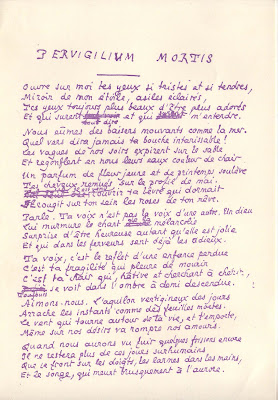 PERVIGILIUM MORTIS
Ouvre sur moi tes yeux si tristes et si tendres,
Miroir de mon étoile, asiles éclairés,
Tes yeux toujours plus beaux d'être plus adorés
Et qui surent tout dire et qui m'entendre.
Nous eûmes des baisers mouvants comme la mer.
Quel vers dira jamais ta bouche intarissable!
Les vagues de nos soirs expirent sur le sable
Et regonflent en nous leurs eaux couleur de chair
Un parfum de fleur jeune et de printemps soulève
Tes cheveux remués sur le profil de mai.
découvrir ta lèvre qui dormait
sur ton sein les roses de ton rêve.
Parle. Ta voix n'est pas la voix d'une autre. Un dieu
Lui murmure le chant mélancolie
Surprise d'être heureuse autant qu'elle est jolie
Et qui dans les ferveurs sent déjà les adieux.
Ta voix, c'est le reflet d'une enfance perdue
C'est ta fragilité qui pleure de mourir
C'est ta chair qui, furtive et cherchant à chérir,
Toujours se voit dans l'ombre à demi descendue.
Aimons-nous. L'aquilon vertigineux des jours
Arrache les instants comme des feuilles mortes.
Le vent qui tourne autour de ta vie, et t'emporte,
Même sur nos désirs va rompre nos amours.
Quand nous aurons vu fuir quelques frissons encore
Il ne restera plus de ces jours surhumains
Que le front sur les doigts, les larmes dans les mains,
Et le songe, qui meurt brusquement à l'aurore.